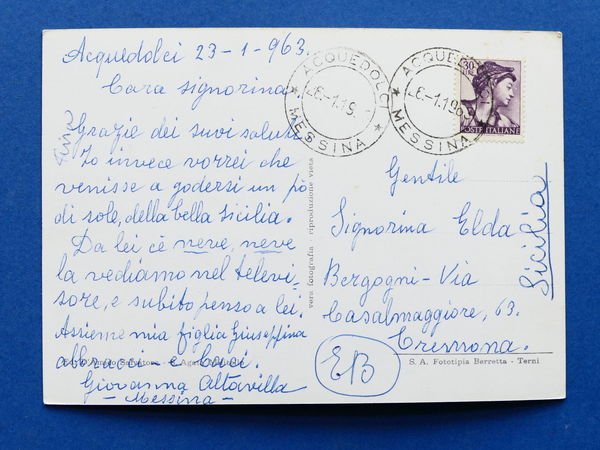 Acquedolci 23-1-963.
Cara signorina
Grazie dei suoi saluti
Io invece vorrei che
venisse a godersi un pò
di sole, della bella Sicilia.
Da lei c'è neve, neve
la vediamo nel televi-
sore, e subito penso a lei.
Assieme mia figlia Giuseppina
abbracci e baci.
Giovanna Altavilla
- Messina -
vera fotografia - riproduzione vieta
ACQUEDOLCI
-1.19
* MESSINA *
ACQUEDOLCI
-1.1963
* MESSINA *
30
LIRE
POSTE ITALIANE
Gentile
Signorina Elda
Bergogni - Via
Casalmaggiore, 63.
Cremona.
Sicilia
EB
S. A. Fototipia Berretta - Terni